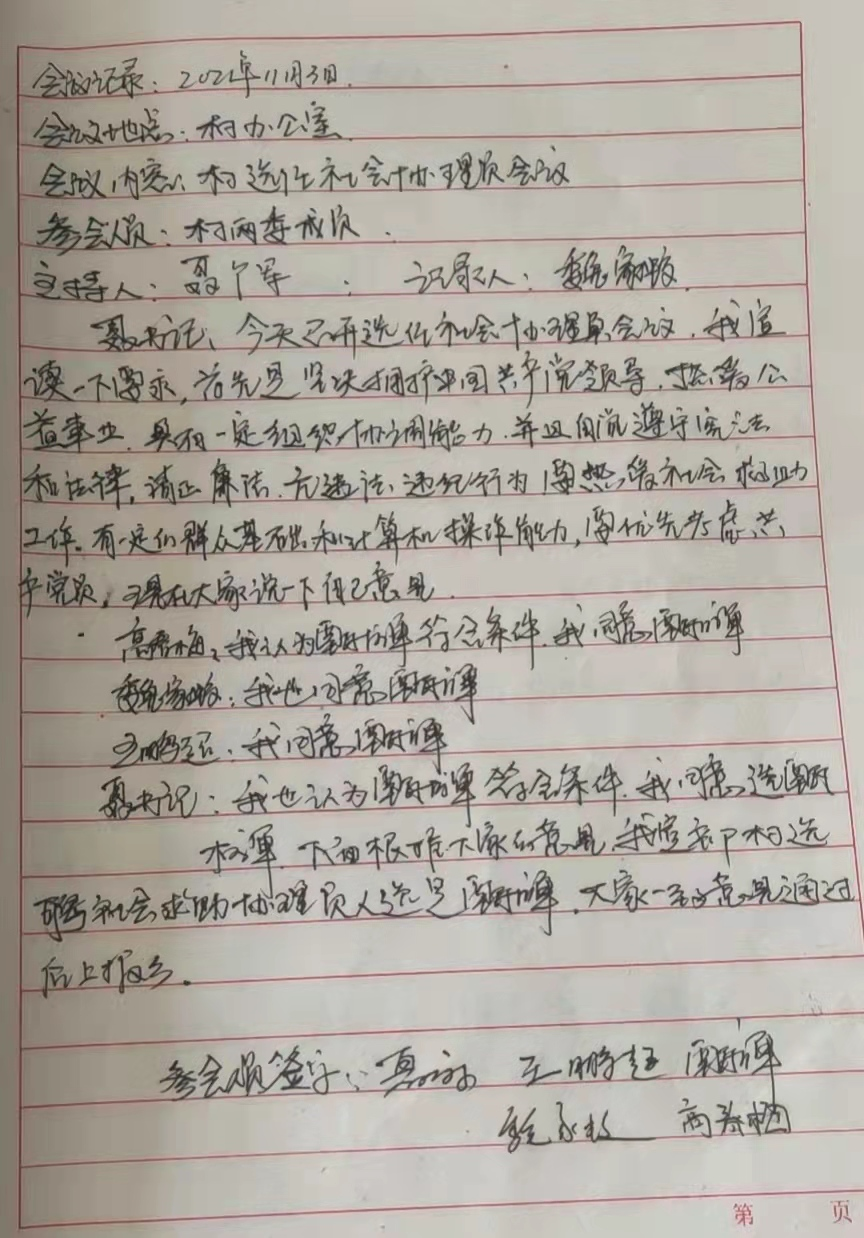 会议记录：202 年11月3日.
会议地点：村办公室
会议内容：村选任社会协理员会议
参会人员：村两委成员.
主持人：聂 军 ； 记录人：魏家
聂书记：今天召开选任社会协理员会议，我宣
读一下要求，首先是坚决拥护中国共产党领导，热爱公
益事业，具有一定组织协调能力，并且自觉遵守宪法
和法律，清正廉洁.无违法.违纪行为 要热爱社会救助
工作。有一定的群众基础和计算机操作能力，要优先考虑共
产党员，现在大家说一下自己意见
高秀梅：我认为 符合条件.我同意
魏家 ：我也同意
王鹏超：我同意
聂书记：我也认为 符合条件.我同意选
下面根据大家的意见，我宣布下村选
聘社会救助协理员人选是 ，大家一致意见通过
后上报乡。
参会人员签字： 王鹏超
高秀梅
第 页